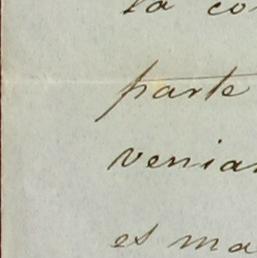 la co
parte
venian
es ma